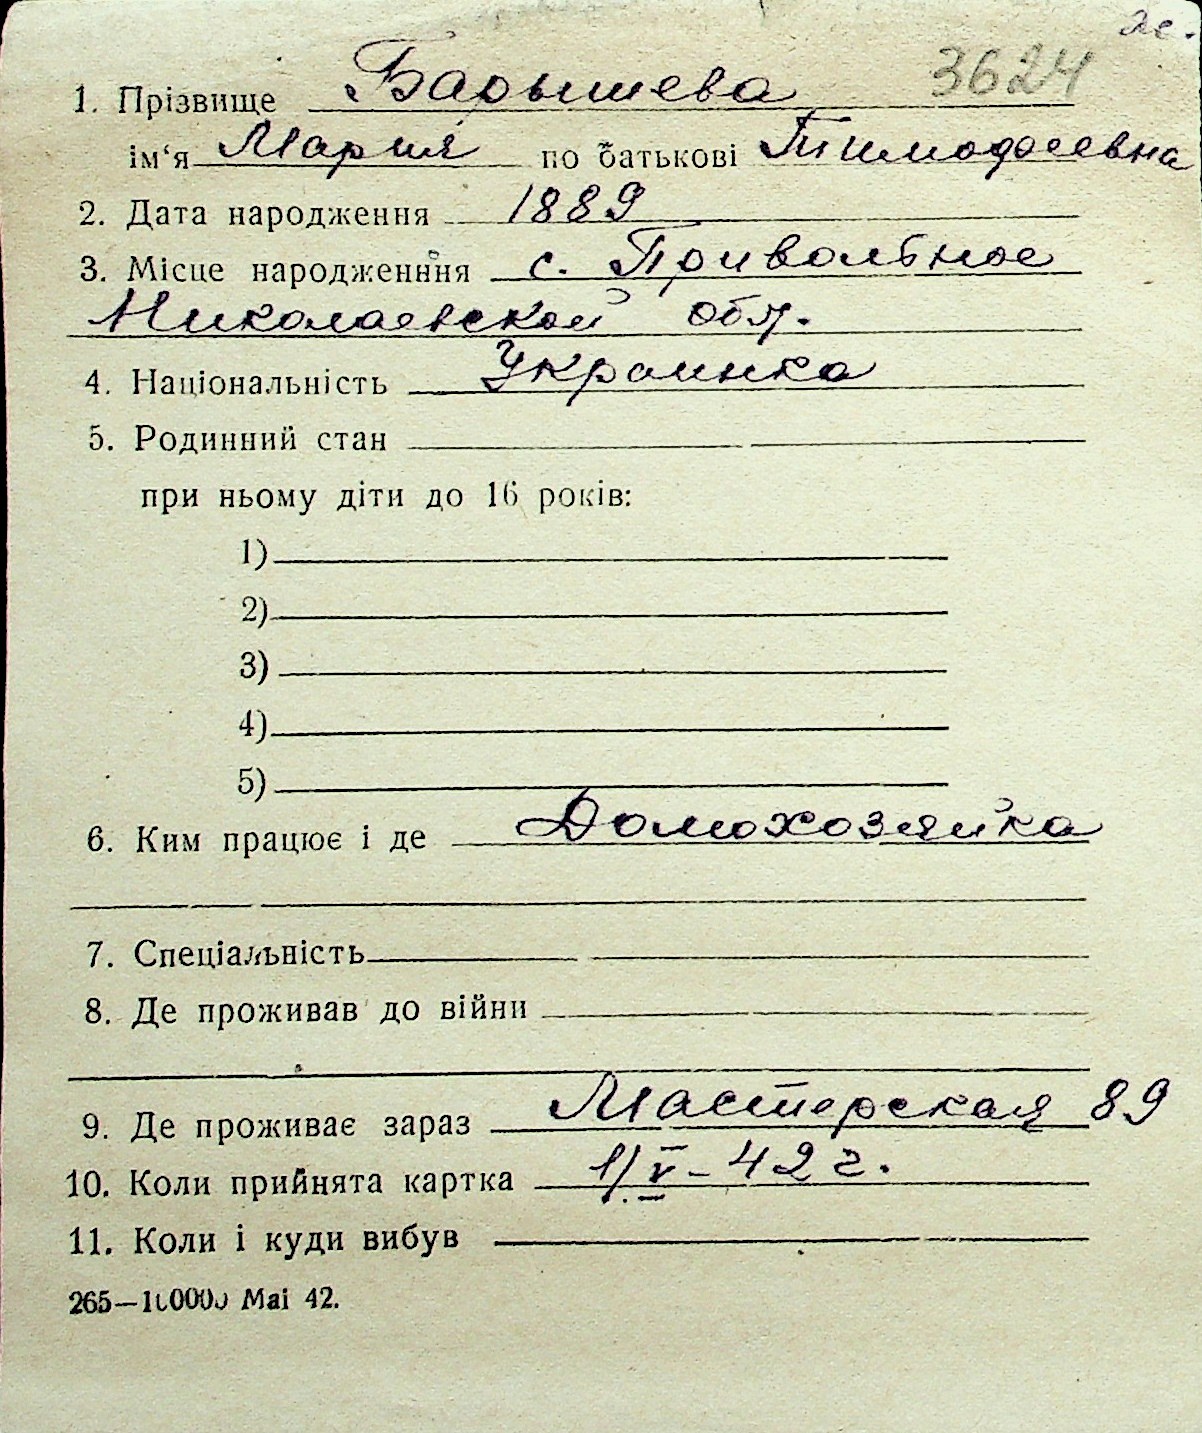 же.
3624
1. Прізвище Барышева
ім‘я Мария по батькові Тимофеевна
2. Дата народження 1889
3. Місце народженння с. Привольное
Николаевской обл.
4. Національність Украинка
5. Родинний стан
при ньому діти до 16 років:
1)
2)
3)
4)
5)
6. Ким працює і де Домохозяйка
7. Спеціальність
8. Де проживав до війни
9. Де проживає зараз Мастерская 89
10. Коли прийнята картка 1/V-42 г.
11. Коли і куди вибув
265—10000 Mai 42.